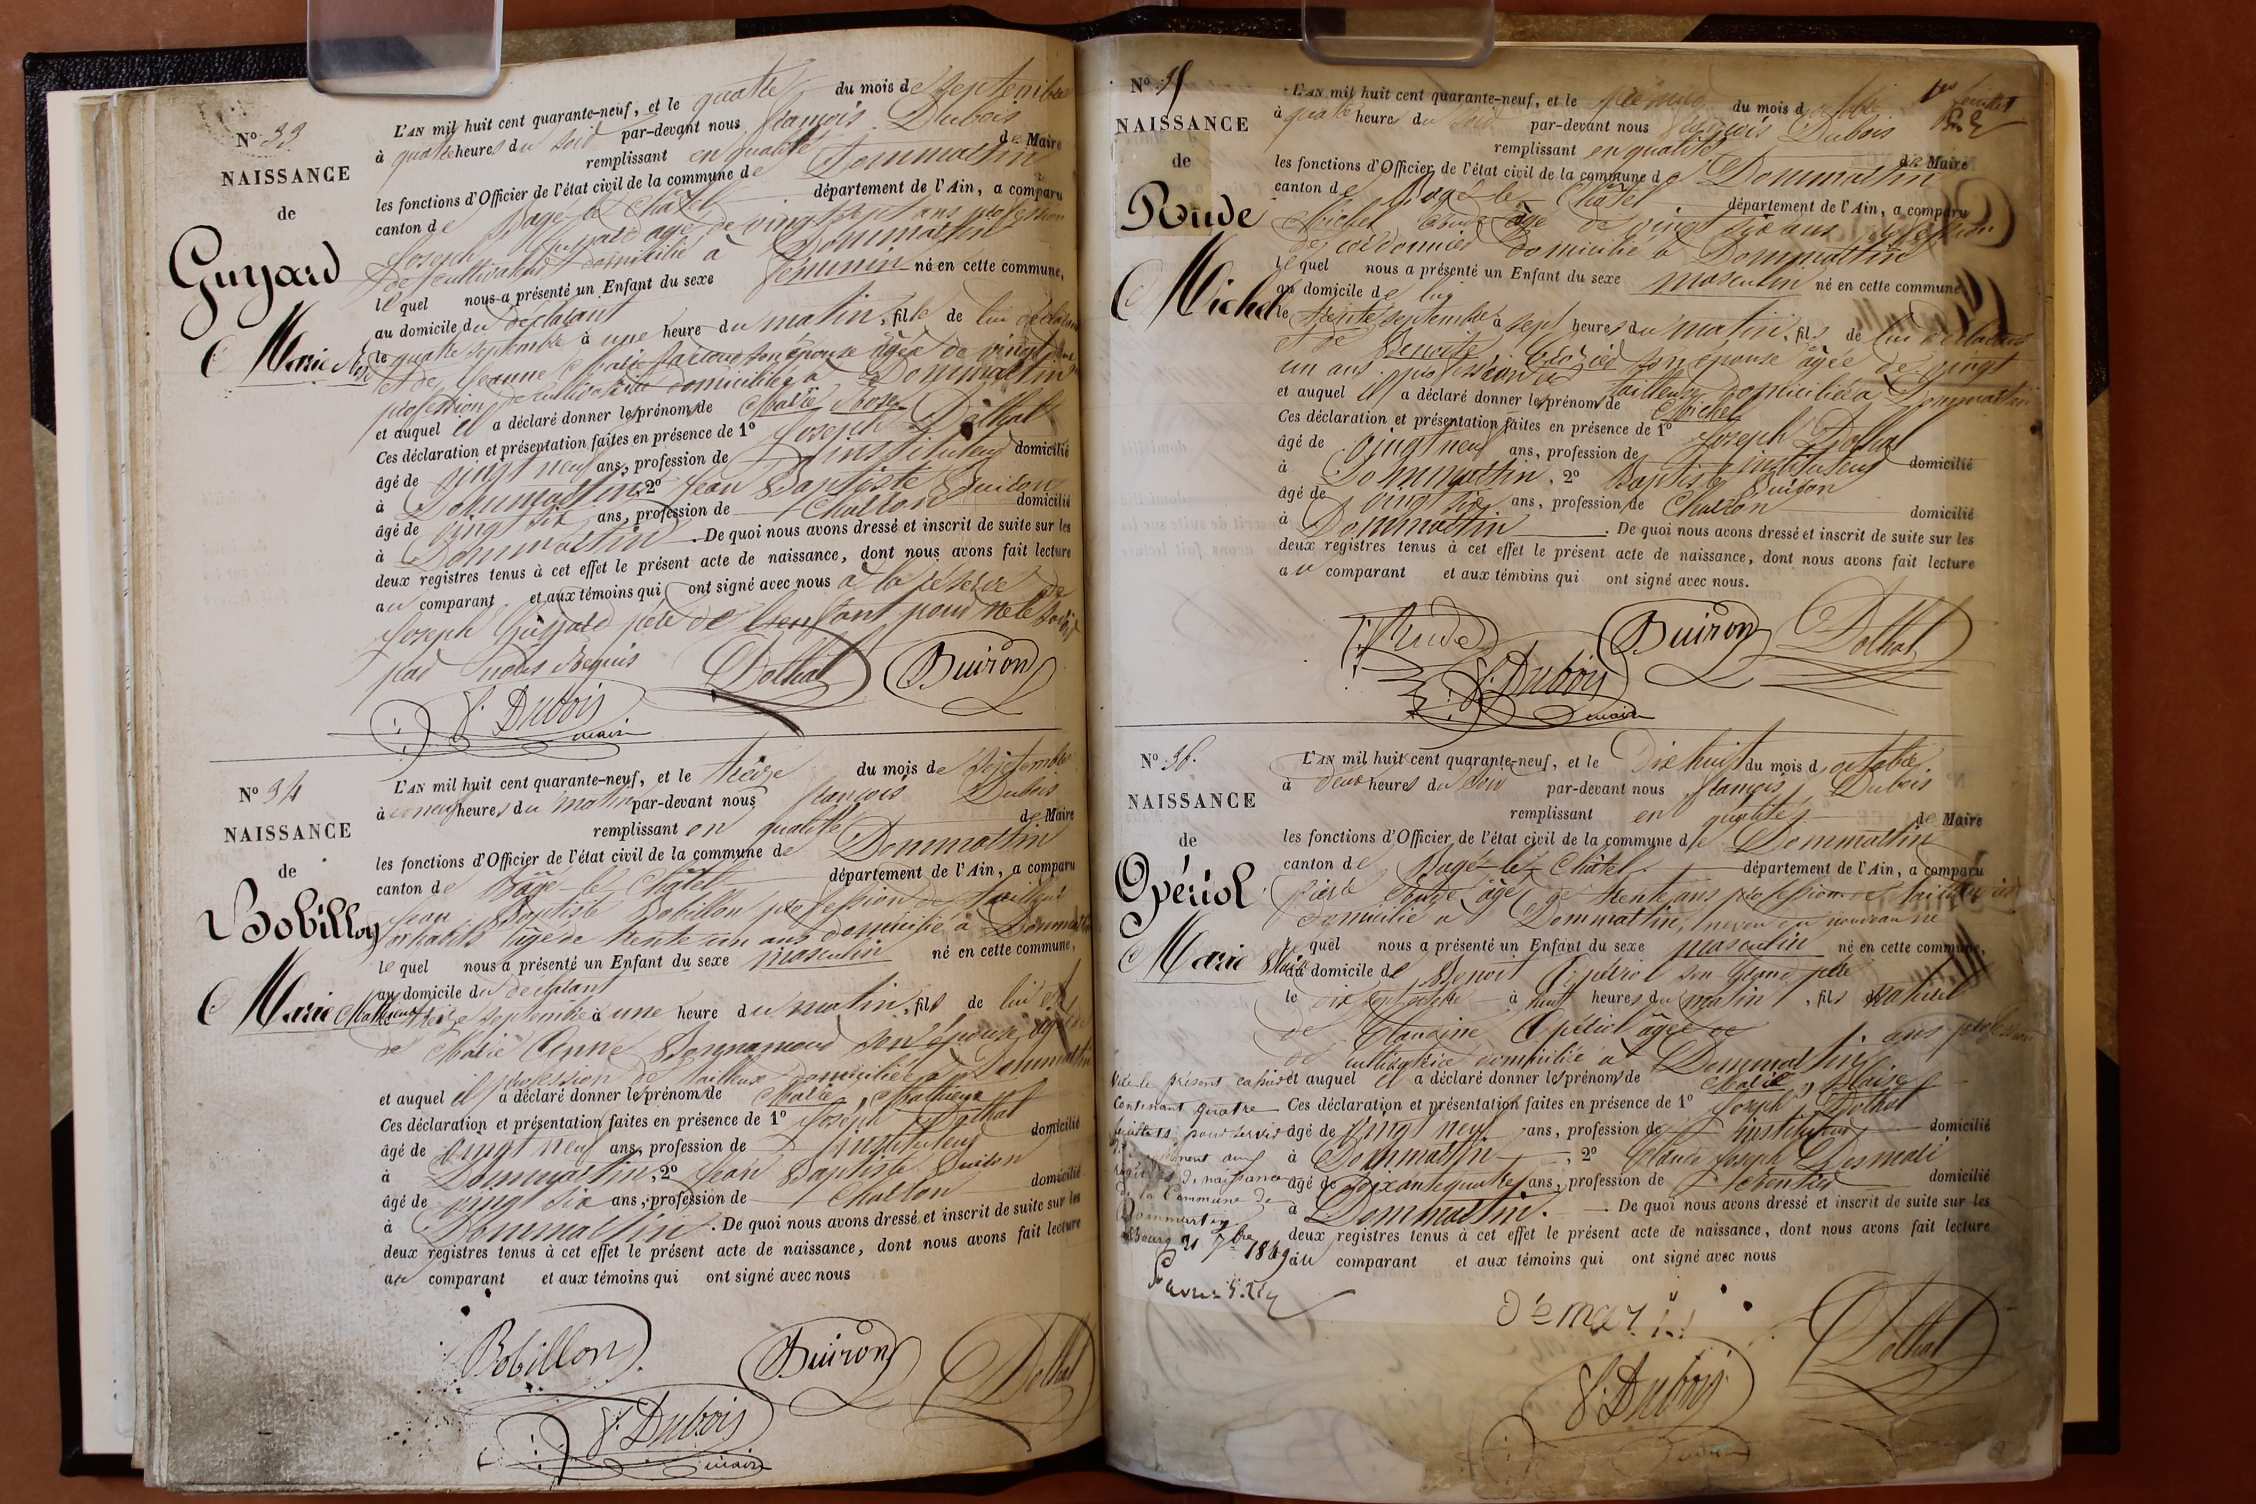 N° 33
NAISSANCE
de
Guyard
Marie Rose
L'AN mil huit cent quarante-neuf, et le quatre du mois de septembre
à quatre heures du soir par-devant nous françois Dubois
remplissant en qualité de Maire
les fonctions d'Officier de l'état civil de la commune de Dommartin
canton de Bagé le Châtel département de l'Ain, a comparu
Joseph Guyard âgé de vingt sept ans profession
de cultivateur domicilié à Dommartin
lequel nous a présenté un Enfant du sexe féminin né en cette commune,
au domicile du déclarant
le quatre septembre à une heure du matin, fille de lui déclarant
et de Jeanne Marie son épouse âgée de vingt
profession de cultivatrice domiciliée à Dommartin
et auquel il a déclaré donner les prénoms de Marie Rose
Ces déclaration et présentation faites en présence de 1° Joseph Dothal
âgé de vingt neuf ans, profession de instituteur domicilié
à Dommartin, 2° Jean Baptiste Buiron
âgé de vingt six ans, profession de Charron domicilié
à Dommartin. De quoi nous avons dressé et inscrit de suite sur les
deux registres tenus à cet effet le présent acte de naissance, dont nous avons fait lecture
au comparant et aux témoins qui ont signé avec nous à la réserve de
Joseph Guyard père de l'enfant pour ne le savoir
par nous Requis
Dothal Buiron
f. Dubois
maire
N° 34
NAISSANCE
de
Bobillon
Marie Mathieu
L'AN mil huit cent quarante-neuf, et le treize du mois de septembre
à neuf heures du matin par-devant nous françois Dubois
remplissant en qualité de Maire
les fonctions d'Officier de l'état civil de la commune de Dommartin
canton de Bâgé-le-Châtel département de l'Ain, a comparu
Jean Baptiste Bobillon profession de tailleur
d'habits âgé de trente un ans domicilié à Dommartin
lequel nous a présenté un Enfant du sexe masculin né en cette commune,
au domicile du déclarant
le treize septembre à une heure du matin, fils de lui et
de Marie Anne Bonnamour son épouse âgée de
profession de tailleuse domiciliée à Dommartin
et auquel il a déclaré donner les prénoms de Marie, Mathieu
Ces déclaration et présentation faites en présence de 1° Joseph Dothal
âgé de vingt neuf ans, profession de instituteur domicilié
à Dommartin, 2° Jean Baptiste Buiron
âgé de vingt six ans, profession de Charron domicilié
à Dommartin. De quoi nous avons dressé et inscrit de suite sur les
deux registres tenus à cet effet le présent acte de naissance, dont nous avons fait lecture
au comparant et aux témoins qui ont signé avec nous
Bobillon Buiron Dothal
f. Dubois
maire
N° 35
NAISSANCE
de
Rude
Michel
L'AN mil huit cent quarante-neuf, et le premier du mois d'octobre
à quatre heures du soir par-devant nous françois Dubois
remplissant en qualité de Maire
les fonctions d'Officier de l'état civil de la commune de Dommartin
canton de Bagé le Châtel département de l'Ain, a comparu
Michel Rude âgé de vingt six ans profession
de cordonnier domicilié à Dommartin
lequel nous a présenté un Enfant du sexe masculin né en cette commune,
au domicile de lui
le trente septembre à sept heures du matin, fils de lui déclarant
et de Benoite son épouse âgée de vingt
un ans profession de tailleuse domiciliée à Dommartin
et auquel il a déclaré donner les prénoms de Michel
Ces déclaration et présentation faites en présence de 1° Joseph Dothal
âgé de vingt neuf ans, profession de instituteur domicilié
à Dommartin, 2° Baptiste Buiron
âgé de vingt six ans, profession de Charron domicilié
à Dommartin. De quoi nous avons dressé et inscrit de suite sur les
deux registres tenus à cet effet le présent acte de naissance, dont nous avons fait lecture
au comparant et aux témoins qui ont signé avec nous.
Rude Buiron Dothal
f. Dubois
maire
N° 36.
NAISSANCE
de
Opériol
Marie Blaise
L'AN mil huit cent quarante-neuf, et le Dix huit du mois d'octobre
à deux heures du soir par-devant nous françois Dubois
remplissant en qualité de Maire
les fonctions d'Officier de l'état civil de la commune de Dommartin
canton de Bagé-le-Châtel. département de l'Ain, a comparu
âgé de trente ans profession de
domicilié à Dommartin, neveu du nouveau né
lequel nous a présenté un Enfant du sexe masculin né en cette commune,
au domicile de Benoit Opériol son Grand père
le dix sept octobre à huit heures du matin, fils naturel
de Claudine Opériol âgée de ans profession
de cultivatrice domiciliée à Dommartin
et auquel il a déclaré donner les prénoms de Marie, Blaise
Ces déclaration et présentation faites en présence de 1° Joseph Dothal
âgé de vingt neuf ans, profession de instituteur domicilié
à Dommartin, 2° Claude Joseph Desmari
âgé de soixante quatre ans, profession de Rentier domicilié
à Dommartin. De quoi nous avons dressé et inscrit de suite sur les
deux registres tenus à cet effet le présent acte de naissance, dont nous avons fait lecture
au comparant et aux témoins qui ont signé avec nous
le présent cahier
contenant quatre
feuillets pour servir
registres de naissance
de la Commune de
Dommartin
Bourg 21 7bre 1849
Démari Dothal
f. Dubois